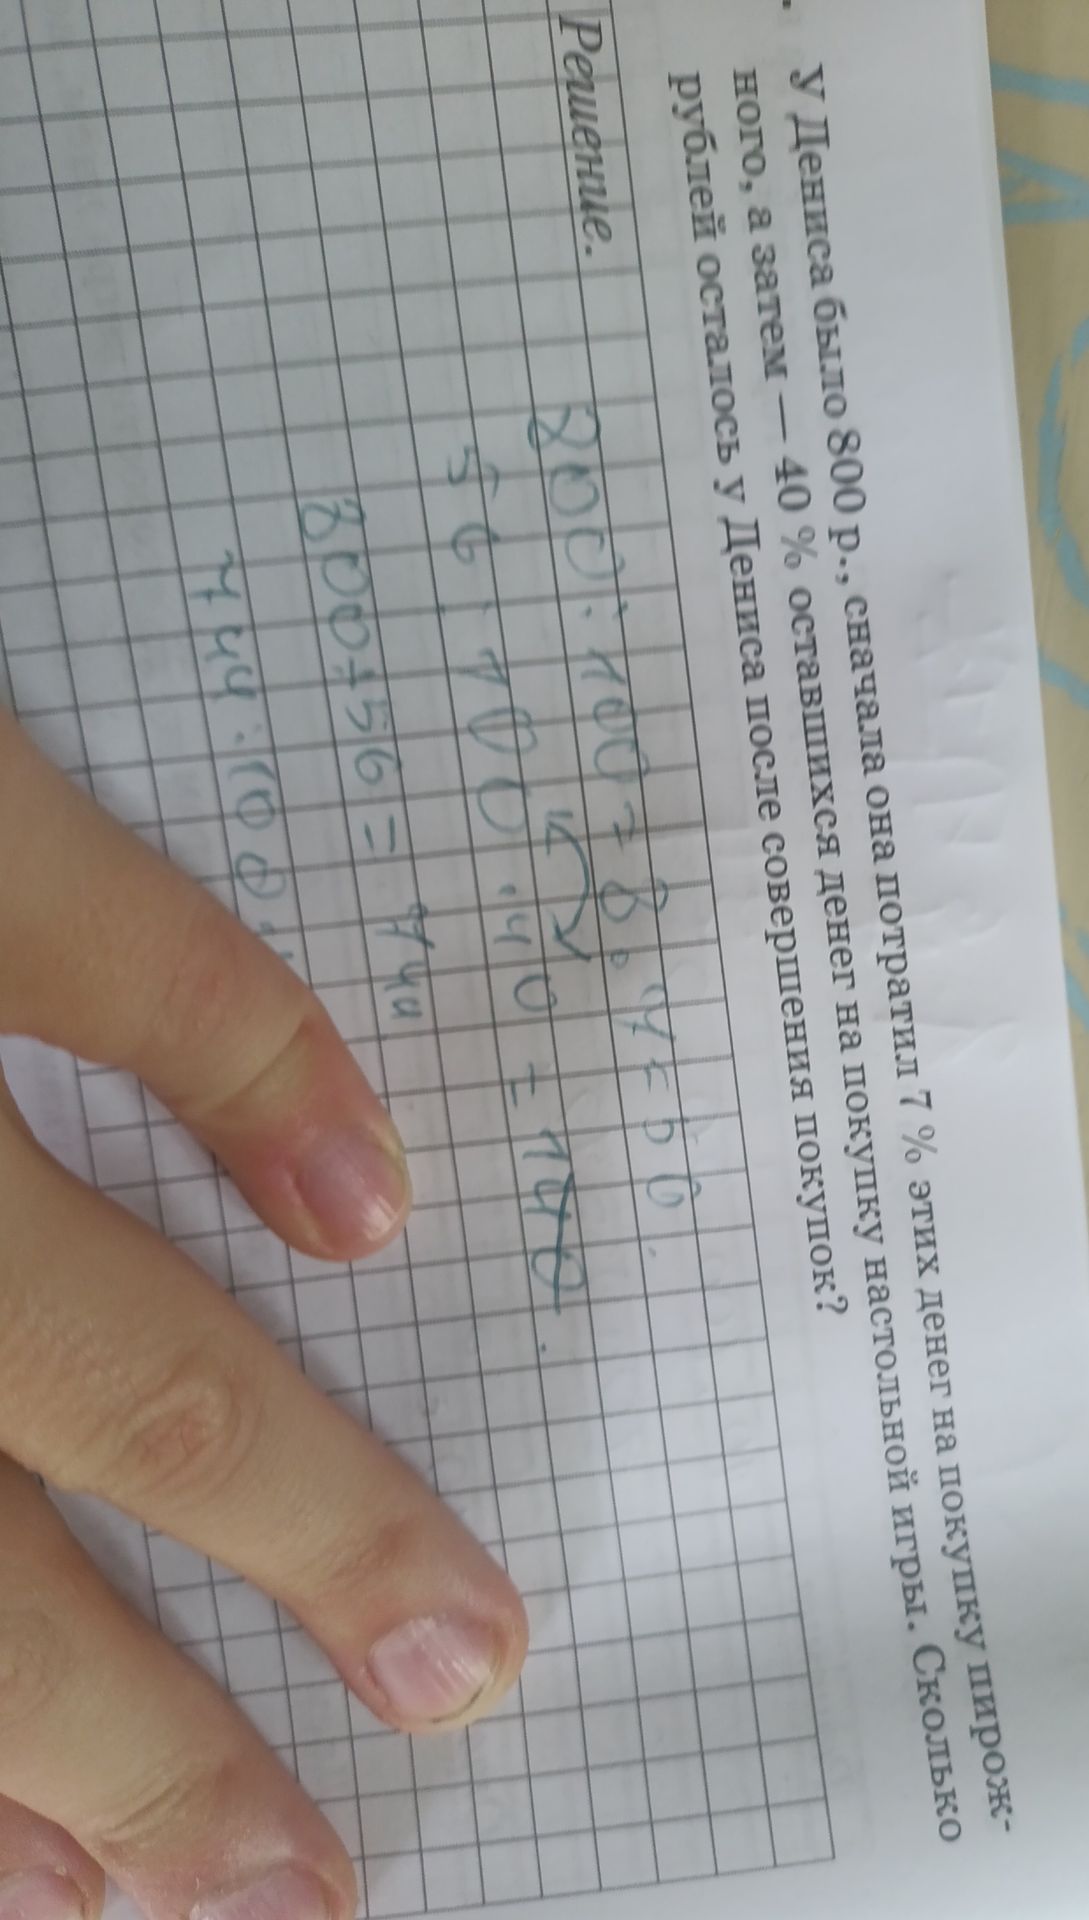 У Дениса было 800 р., сначала она потратил 7 % этих денег на покупку пирож-
ного, а затем — 40 % оставшихся денег на покупку настольной игры. Сколько
рублей осталось у Дениса после совершения покупок?
Решение.
800:100=8·7=56.
56:100·40=140.
800-56=744
744:100